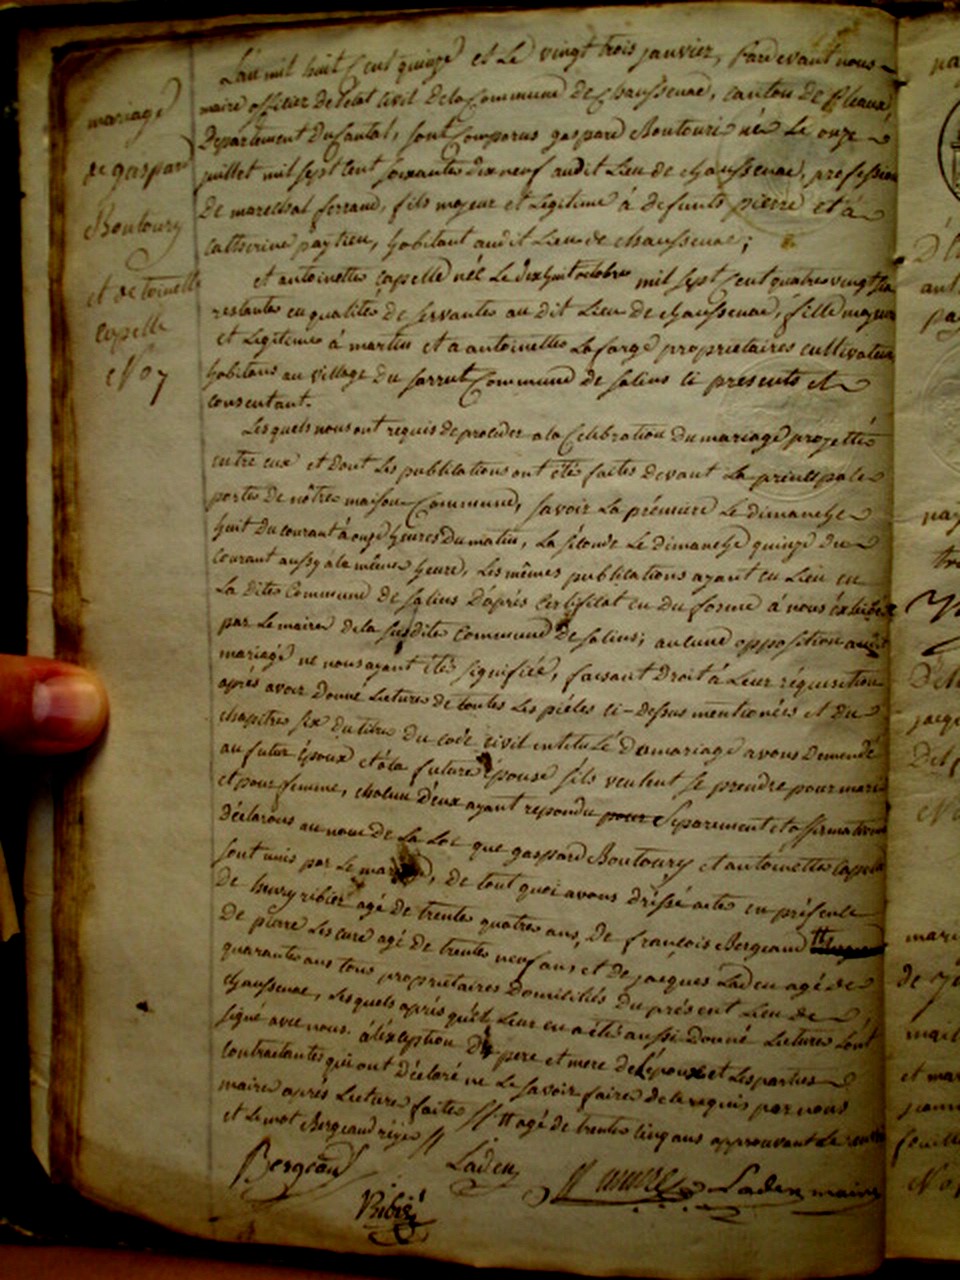 mariage
de gaspard
Boutoury
et detoinette
Capelle
N° 7
L'an mil huit Cent quinze et Le vingt trois janvier, Pardevant nous
maire officier de letat Civil dela Commune de Chaussenac, canton de Pleaux
Departement du Cantal, sont Comparus gaspard Boutouri né Le onze
juillet mil sept cent soixante dix neuf audit Lieu de chaussenac, profession
De marechal ferrand, fils majeur et Legitime à defunts pierre et à
Catherine paytieu, habitant audit Lieu de chaussenac;
et antoinette Capelle née Le dixhuit octobre mil sept Cent quatre vingt
restante en qualité de servante au dit Lieu de chaussenac, fille majeure
et Legitime à martin et a antoinette Lafarge proprietaires cultivateurs
habitans au village du sarrut Commune de salins ci presents et
consentant.
Lesquels nous ont requis de proceder a la Celebration du mariage projetté
entre eux et dont Les publications ont été faites devant La principale
porte de nôtre maison Commune, savoir La prémiere Le dimanche
huit du courant à onze heures du matin, La séconde Le dimanche quinze du
Courant aussy à la même heure, Les mêmes publications ayant eu Lieu en
La dite Commune de salins D'aprés Certificat en Du forme à nous exhibée
par Le maire dela susdite Commune de salins; aucune opposition audit
mariage ne nous ayant été signifiée, faisant Droit à Leur réquisition
aprés avoir Donné Lecture de toutes Les piéces ci-dessus mentionnées et du
chapitre six du titre du code Civil intitulé Du mariage avons demandé
au futur Epoux et à la future épouse s'ils veulent se prendre pour mari
et pour femme, chacun d'eux ayant repondu pour séparement et affirmativement
déclarons au nom de La Loi que gaspard Boutoury et antoinette Capelle
sont unis par Le mariage, de tout quoi avons dréssé acte en présence
De henry ribier agé de trente quatre ans, De francois Bergeaud
De pierre Lescure agé de trente neuf ans et de jacques Laden agé de
quarante ans tous proprietaires Domiciliés du présent Lieu de
Chaussenac, Lesquels aprés qu'il Leur en a été aussi Donné Lecture L'ont
signé avec nous. à L'éxception du pere et mere de L'épouse et Les parties
Contractantes qui ont Déclaré ne Le savoir faire de ce requis par nous
maire aprés Lecture faite // tt agé de trente Cinq ans approuvant Le
et Le mot Bergeaud rayé //
Bergeaud Laden Lescure Laden maire
Ribié